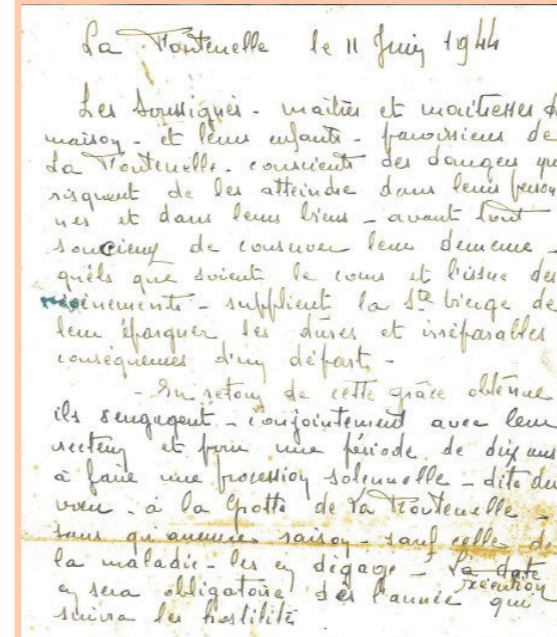 La Fontenelle le 11 Juin 1944
Les soussignés - maîtres et maîtresses de
maison - et leurs enfants - paroissiens de
La Fontenelle - conscients des dangers qui
risquent de les atteindre dans leurs person
nes et dans leurs biens - avant tout
soucieux de conserver leur demeure -
quels que soient le cours et l'issue des
événements - supplient la Ste Vierge de
leur épargner les dures et irréparables
conséquences d'un départ -
- En retour de cette grâce obtenue
ils s'engagent - conjointement avec leur
recteur et pour une période de dix ans
à faire une procession solennelle - dite du
vœu - à la Grotte de La Fontenelle -
sans qu'aucune raison - sauf celle de
la maladie - les en dégage - La date
exécution
en sera obligatoire dès l'année qui
suivra les hostilité